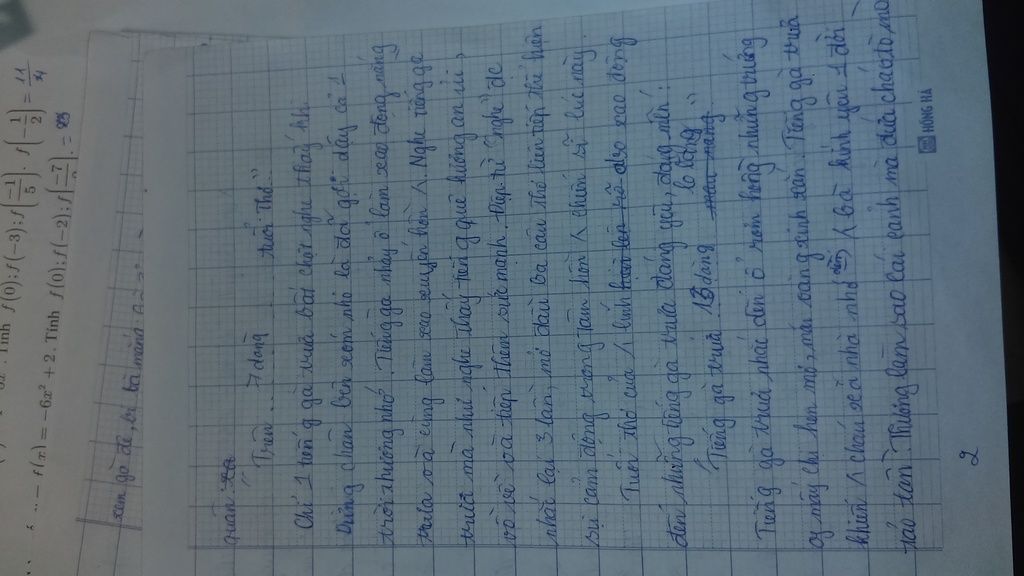 Tính f(0); f(-3); f(-1/5); f(-1/2) = 11/4
f(x) = -6x² + 2. Tính f(0); f(-2); f(-7/
xem gà đẻ, bị bà mắng
quân
"Trên ... 7 dòng tuổi thơ"
Chỉ 1 tiếng gà trưa bất chợt nghe thấy khi
dừng chân bên xóm nhỏ là đã gợi dậy cả 1
trời thương nhớ. Tiếng gà nhảy ổ làm xao động nắng
trưa và cũng làm xao xuyến hồn ^. Nghe tiếng gà
trưa mà như nghe thấy tiếng quê hương an ủi,
vỗ về và tiếp thêm sức mạnh. Điệp từ "nghe" đc
nhắc lại 3 lần, mở đầu ba câu thơ liên tiếp thể hiện
sự cảm động trong tâm hồn ^ chiến sĩ lúc này.
Tuổi thơ của ^ lính dào xao động
đến những tiếng gà trưa đáng yêu, đáng mến!
"Tiếng gà trưa 13 dòng lo lắng"
Tiếng gà trưa nhắc đến ổ rơm hồng những trứng
of mấy chị hen mơ, mái vàng sinh sắn. Tiếng gà trưa
khiến ^ cháu xa nhà nhớ đến ^ bà kính yêu 1 đời
tảo tần. Thương làm sao cái cảnh mà đứa cháu tò mò
HỒNG HÀ
2